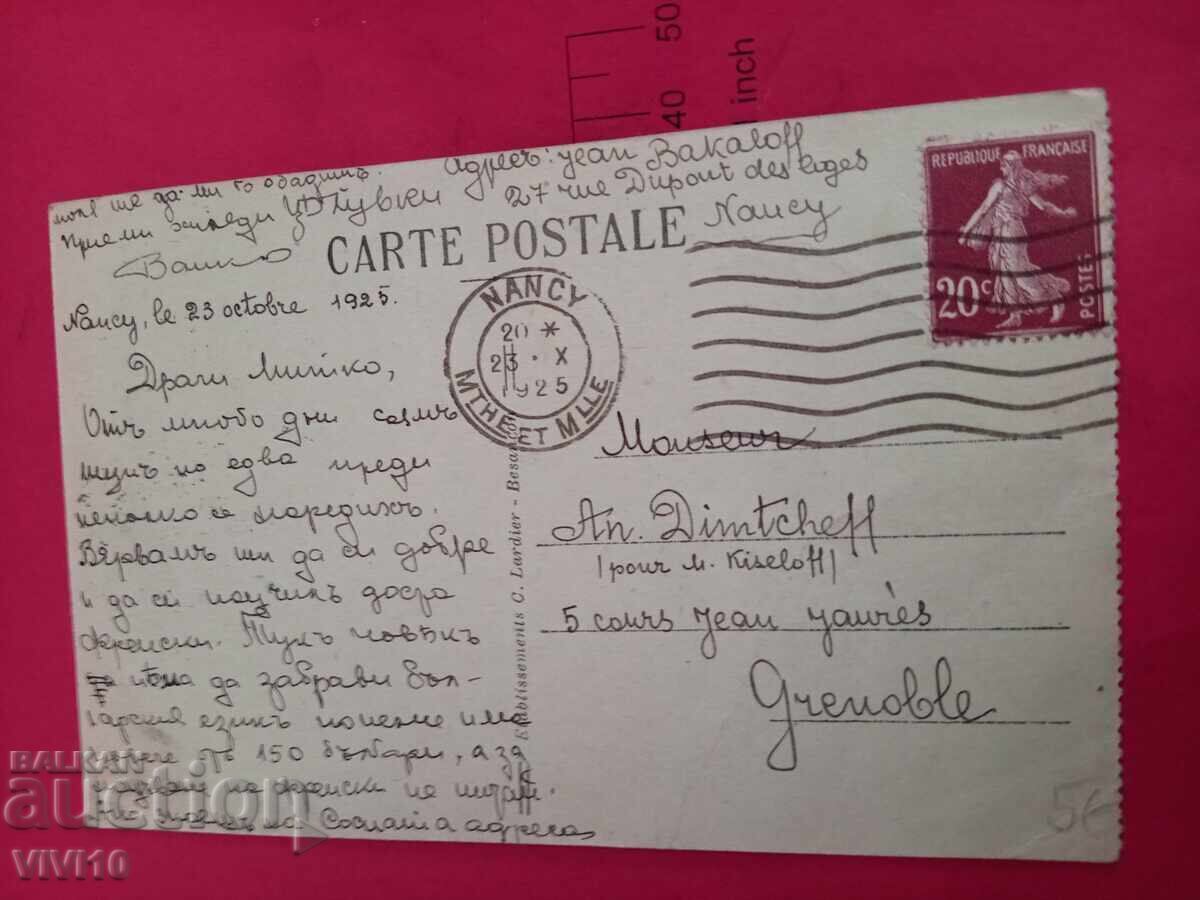 50
40
inch
моля ще да ми го обадишъ.
Приеми хиляди цѣлувки
Ванко
Адресъ: Jean Bakaloff
27 rue Dupont des Loges
Nancy
CARTE POSTALE
REPUBLIQUE FRANÇAISE
20c
POSTES
NANCY
20 *
23 · X
1925
MTHE ET MLLE
Nancy, le 23 octobre 1925.
Драги Митко,
Отъ много дни съмъ
тукъ но едва преди
неколко се наредихъ.
Вѣрвамъ ти да си добре
и да си научилъ добре
френски. Тукъ човѣкъ
нѣма да забрави бъл-
гарския езикъ понеже има
по 150 българи, а за
на френски не питай.
на Соплата адреса
Etablissements C. Lardier - Besançon
Monseur
An. Dimtcheff
(pour M. Kiseloff)
5 cours Jean Jaurès
Grenoble
5€
BALKAN
auction
VIVI10